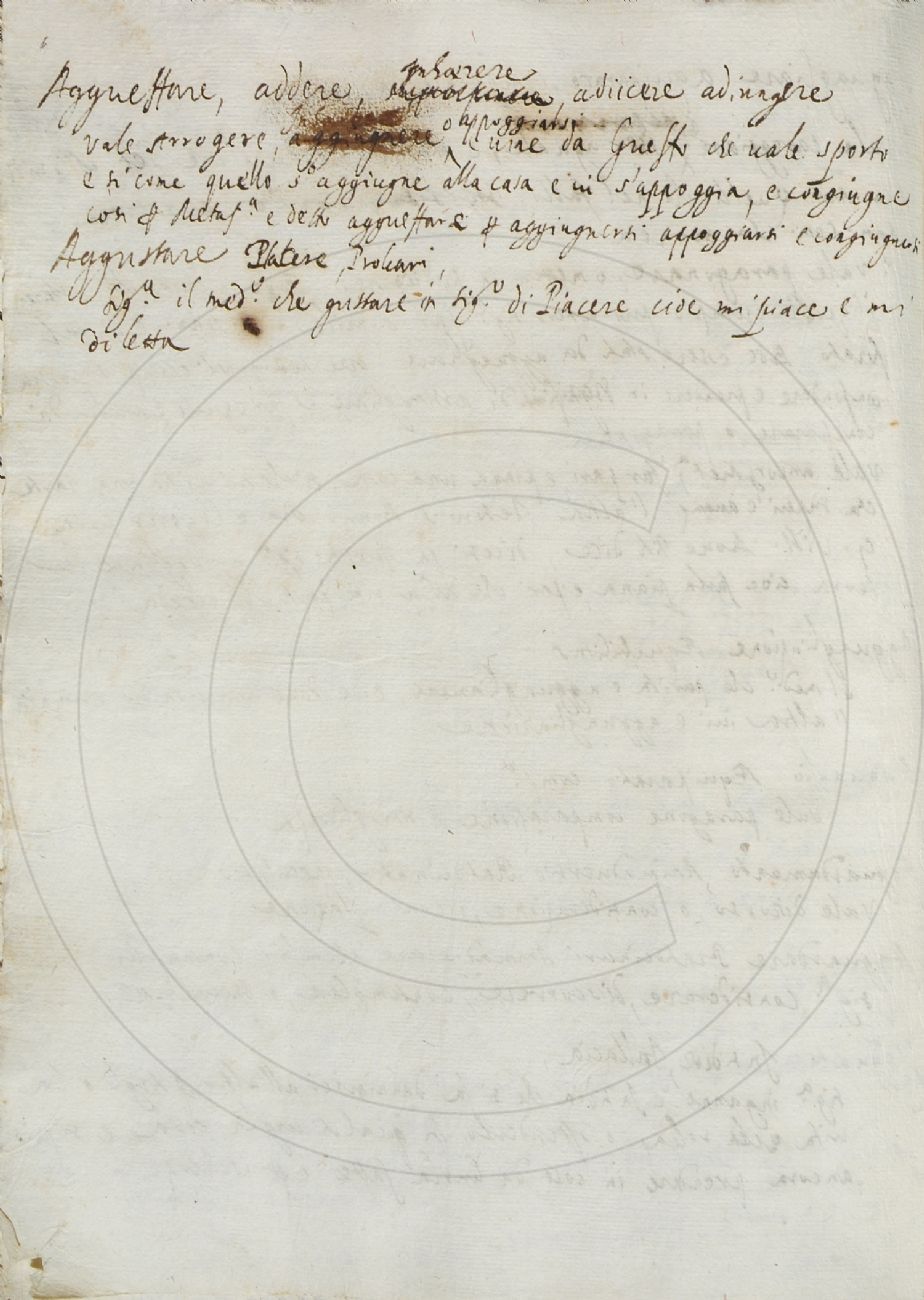 Aggueffare, addere, inhærere, adiicere adiungere
vale Arrogere, aggiugnere o appoggiarsi, e uiene da Gueffo che uale sporto
e sì come quello s'aggiugne alla casa e iui s'appoggia, e congiugne
così p Metaf.ª e detto aggueffare p aggiugnersi appoggiarsi e congiugnersi
Aggustare Placere, Probari,
Sig.ª il med.º che gustare in sig.º di Piacere cioè mi piace e mi
diletta